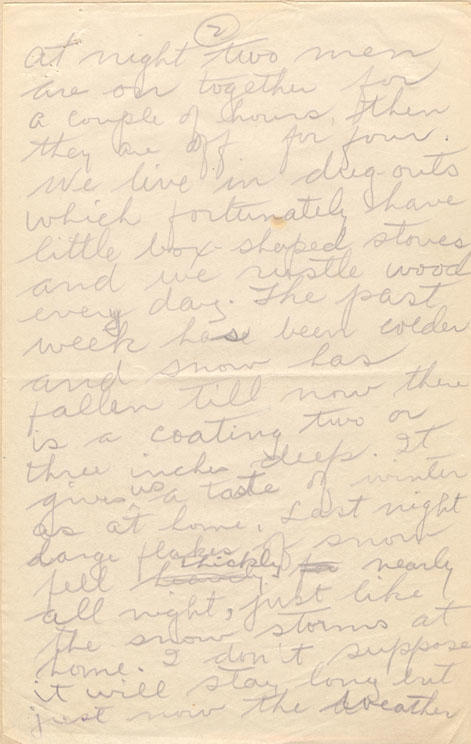 2
at night two men
are on together for
a couple of hours, then
they are off for four.
We live in dug-outs
which fortunately have
little box-shaped stoves
and we rustle wood
every day. The past
week has been colder
and snow has
fallen till now there
is a coating two or
three inches deep. It
gives us a taste of winter
as at home. Last night
large flakes of snow
fell heavily thickly for nearly
all night, just like
the snow storms at
home. I don't suppose
it will stay long but
just now the weather